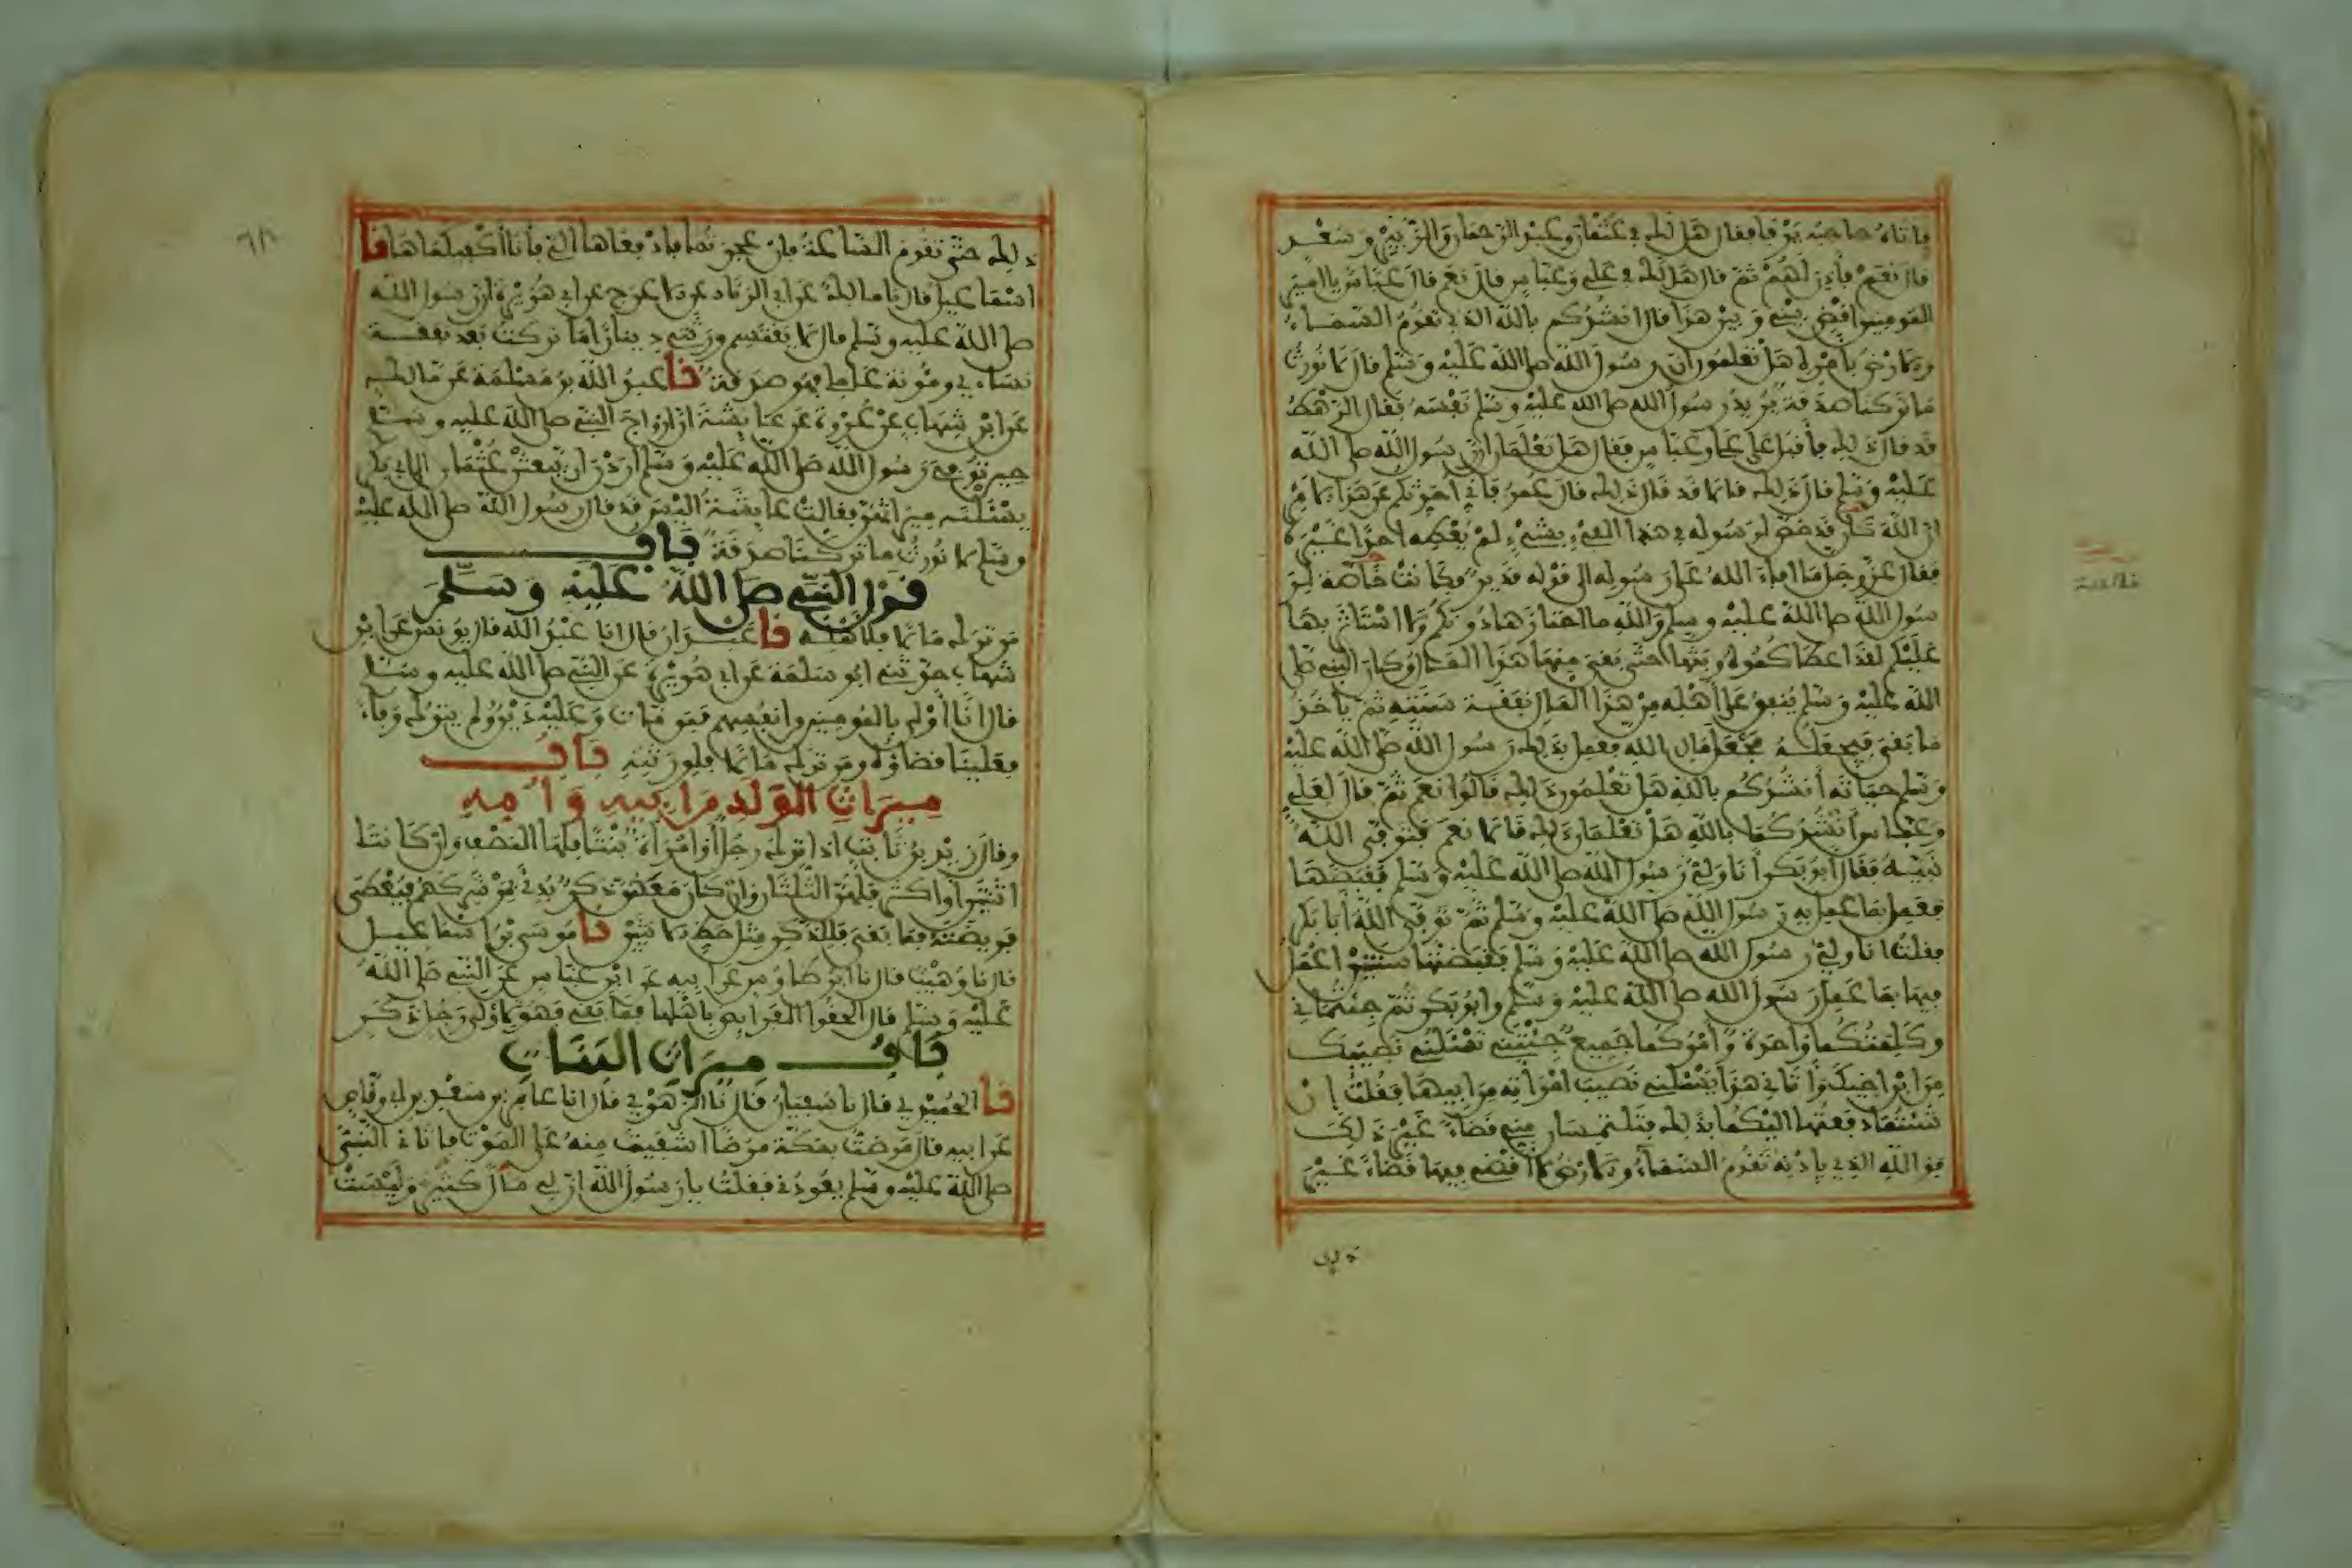 فاتاه حاجبه يرفا فقال هل لك في عثمان وعبد الرحمان والزبير وسعد
قال نعم فاذن لهم ثم قال هل لك في علي وعباس قال نعم قال عباس يا امير
المومنين اقض بيني وبين هذا قال انشدكم بالله الذي تقوم السماء
والارض باذنه هل تعلمون ان رسول الله صلى الله عليه وسلم قال لا نورث
ما تركنا صدقة يريد رسول الله صلى الله عليه وسلم نفسه فقال الرهط
قد قال ذلك فاقبل على علي وعباس فقال هل تعلمان ان رسول الله صلى الله
عليه وسلم قال ذلك قالا قد قال ذلك قال عمر فاني احدثكم عن هذا الامر
ان الله كان قد خص لرسوله في هذا الفيء بشيء لم يعطه احدا غيره
فقال عز وجل ما افاء الله على رسوله الى قوله قدير فكانت خاصة لر
سول الله صلى الله عليه وسلم والله ما احتازها دونكم ولا استاثر بها
عليكم لقد اعطاكموه وبثها حتى بقي منها هذا المال وكان النبي صلى
الله عليه وسلم ينفق على اهله من هذا المال نفقة سنته ثم ياخذ
ما بقي فيجعله مجعل مال الله فعمل بذلك رسول الله صلى الله عليه
وسلم حياته انشدكم بالله هل تعلمون ذلك قالوا نعم ثم قال لعلي
وعباس انشدكما بالله هل تعلمان ذلك قالا نعم فتوفى الله
نبيه فقال ابو بكر انا ولي رسول الله صلى الله عليه وسلم فقبضها
فعمل بما عمل به رسول الله صلى الله عليه وسلم ثم توفى الله ابا بكر
فقلت انا ولي رسول الله صلى الله عليه وسلم فقبضتها سنتين اعمل
فيها بما عمل رسول الله صلى الله عليه وسلم وابو بكر ثم جئتماني
وكلمتكما واحدة وامركما جميع جئتني تسئلني نصيبك
من ابن اخيك واتاني هذا يسئلني نصيب امراته من ابيها فقلت ان
شئتما دفعتها اليكما بذلك فتلتمسان مني قضاء غير ذلك
فو الله الذي باذنه تقوم السماء والارض لا اقضي فيها قضاء غير
ذلك حتى تقوم الساعة فان عجزتما فادفعاها الي فانا اكفيكماها نا
اسماعيل قال نا مالك عن ابي الزناد عن الاعرج عن ابي هريرة ان رسول الله
صلى الله عليه وسلم قال لا يقتسم ورثتي دينارا ما تركت بعد نفقة
نساءي ومؤنة عاملي فهو صدقة نا عبد الله بن مسلمة عن مالك
عن ابن شهاب عن عروة عن عائشة ان ازواج النبي صلى الله عليه وسلم
حين توفي رسول الله صلى الله عليه وسلم اردن ان يبعثن عثمان الى ابي بكر
يسئلنه ميراثهن فقالت عائشة اليس قد قال رسول الله صلى الله عليه
وسلم لا نورث ما تركنا صدقة باب
قول النبي صلى الله عليه وسلم
من ترك مالا فلاهله نا عبدان قال انا عبد الله قال يونس عن ابن
شهاب حدثني ابو سلمة عن ابي هريرة عن النبي صلى الله عليه وسلم
قال انا اولى بالمومنين من انفسهم فمن مات وعليه دين ولم يترك وفاء
فعلينا قضاؤه ومن ترك مالا فلورثته باب
ميراث الولد من ابيه وامه
وقال زيد بن ثابت اذا ترك رجل او امراة بنتا فلها النصف وان كانتا
اثنتين او اكثر فلهن الثلثان وان كان معهن ذكر بدئ بمن شركهم فيعطى
فريضته فما بقي فللذكر مثل حظ الانثيين نا موسى بن اسماعيل
قال نا وهيب قال نا ابن طاوس عن ابيه عن ابن عباس عن النبي صلى الله
عليه وسلم قال الحقوا الفرايض باهلها فما بقي فهو لاولى رجل ذكر
باب ميراث البنات
نا الحميدي قال نا سفيان قال نا الزهري قال انا عامر بن سعد بن ابي وقاص
عن ابيه قال مرضت بمكة مرضا اشفيت منه على الموت فاتاني النبي
صلى الله عليه وسلم يعودني فقلت يا رسول الله ان لي مالا كثيرا وليست